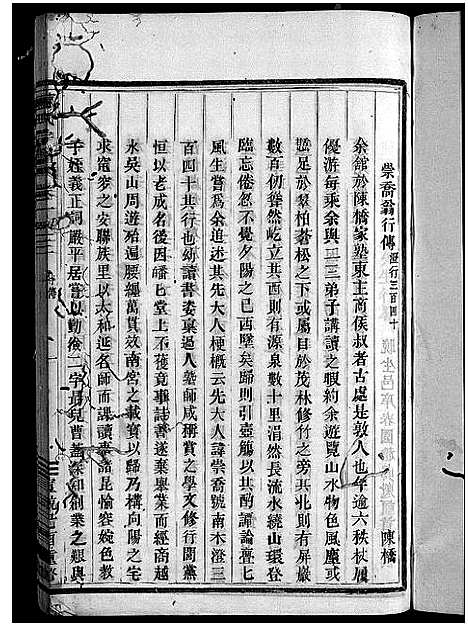 崇喬翁行傳 澄行三百四十 陳橋
余舘於陳橋家塾東主商侯叔者古處是敦人也年逾六秩杖履
優游每乘余與二三弟子講讀之暇約余遊覽山水物色風塵或
憇足於翠柏蒼松之下或屬目於茂林修竹之旁共北則有屏巖
數百仞聳然屹立共有源泉數十里涓然長流水繞山環登
臨忘倦忽不覺夕陽之已西墜矣歸則引壺觴以共酌譚叠七
風生嘗爲余追述其先大人梗概云先大人諱崇喬號南木澄三
百四十其行也幼讀書姿稟過人塾師咸稱賞之學文修行閭黨
恒以老成名後因皤七堂上不獲竟事誌書遂棄舉業而經商越
水吳山周遊殆遍腰纏萬貫效南宮之載寳以歸乃構向陽之宅
求甯寧之安聯族里以太和延名師而課讀華諸昆愉容婉色教
子姪義正詞嚴平居嘗以勤儉二字